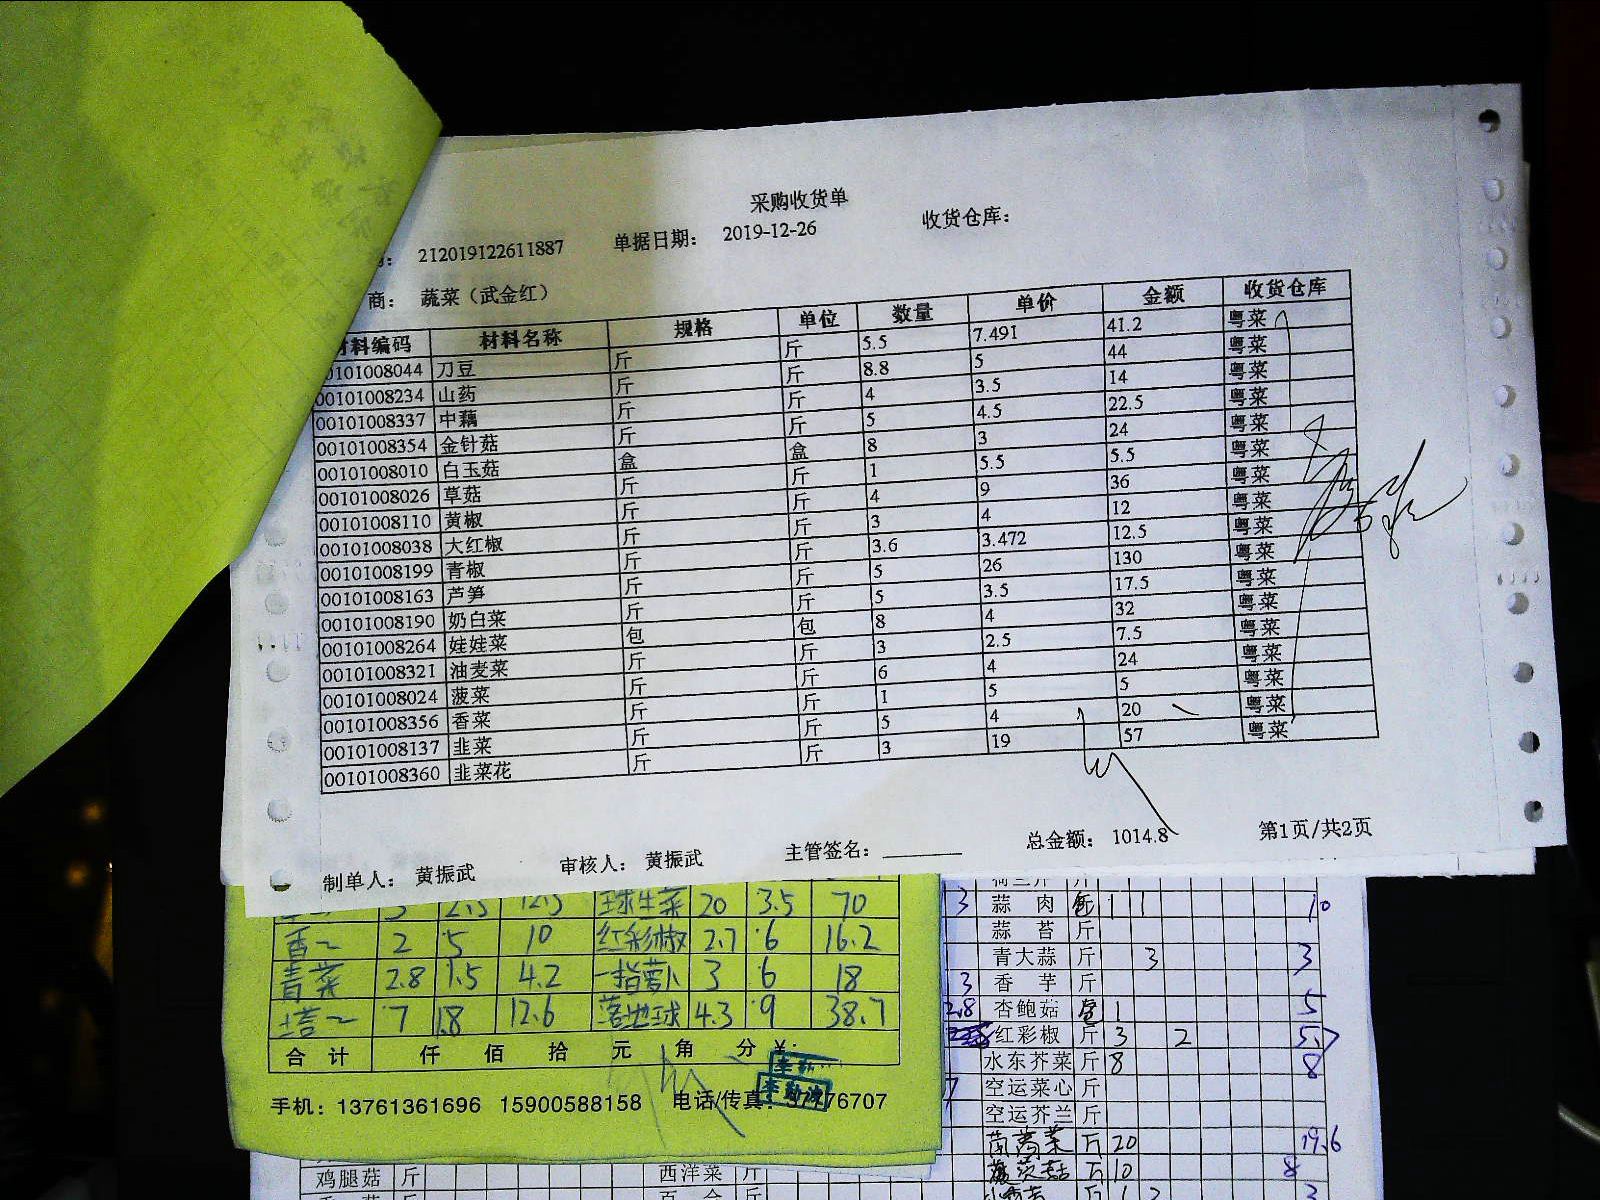 采购收货单
212019122611887 单据日期： 2019-12-26 收货仓库：
商： 蔬菜（武金红）
材料编码 材料名称 规格 单位 数量 单价 金额 收货仓库
0101008044 刀豆 斤 斤 5.5 7.491 41.2 粤菜
00101008234 山药 斤 斤 8.8 5 44 粤菜
00101008337 中藕 斤 斤 4 3.5 14 粤菜
00101008354 金针菇 斤 斤 5 4.5 22.5 粤菜
00101008010 白玉菇 盒 盒 8 3 24 粤菜
00101008026 草菇 斤 斤 1 5.5 5.5 粤菜
00101008110 黄椒 斤 斤 4 9 36 粤菜
00101008038 大红椒 斤 斤 3 4 12 粤菜
00101008199 青椒 斤 斤 3.6 3.472 12.5 粤菜
00101008163 芦笋 斤 斤 5 26 130 粤菜
00101008190 奶白菜 斤 斤 5 3.5 17.5 粤菜
00101008264 娃娃菜 包 包 8 4 32 粤菜
00101008321 油麦菜 斤 斤 3 2.5 7.5 粤菜
00101008024 菠菜 斤 斤 6 4 24 粤菜
00101008356 香菜 斤 斤 1 5 5 粤菜
00101008137 韭菜 斤 斤 5 4 20 粤菜
00101008360 韭菜花 斤 斤 3 19 57 粤菜
制单人： 黄振武 审核人： 黄振武 主管签名： 总金额： 1014.8 第1页/共2页
球生菜 20 3.5 70
香～ 2 5 10 红彩椒 2.7 6 16.2
青菜 2.8 1.5 4.2 一指萝卜 3 6 18
塔～ 7 1.8 12.6 落地球 4.3 9 38.7
合计 仟 佰 拾 元 角 分 ¥:
手机：13761361696 15900588158 电话/传真： 76707
3 蒜肉 包 1 1 10
蒜苔 斤
青大蒜 斤 3 3
3 香芋 斤
2.8 杏鲍菇 包 1 5
红彩椒 斤 3 2 5.7
水东芥菜 斤 8 8
7 空运菜心 斤
空运芥兰 斤
茼蒿菜 斤 20 19.6
斤 10 8
鸡腿菇 斤 西洋菜 斤